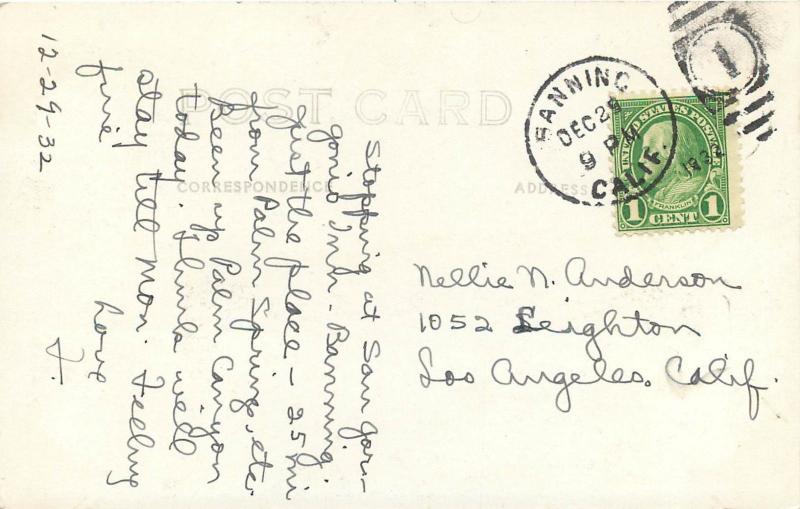 POST CARD
CORRESPONDENCE
ADDRESS
12-29-32
Stopping at San Gor-
gonio Inn - Banning.
Just the place - 25 mi
from Palm Springs, etc.
Been up Palm Canyon
today. Think will
stay till Mon. Feeling
fine
Love
F.
BANNING
DEC 29
9 PM
1932
CALIF.
1
UNITED STATES POSTAGE
FRANKLIN
1 CENT 1
Nellie N. Anderson
1052 Leighton
Los Angeles. Calif.